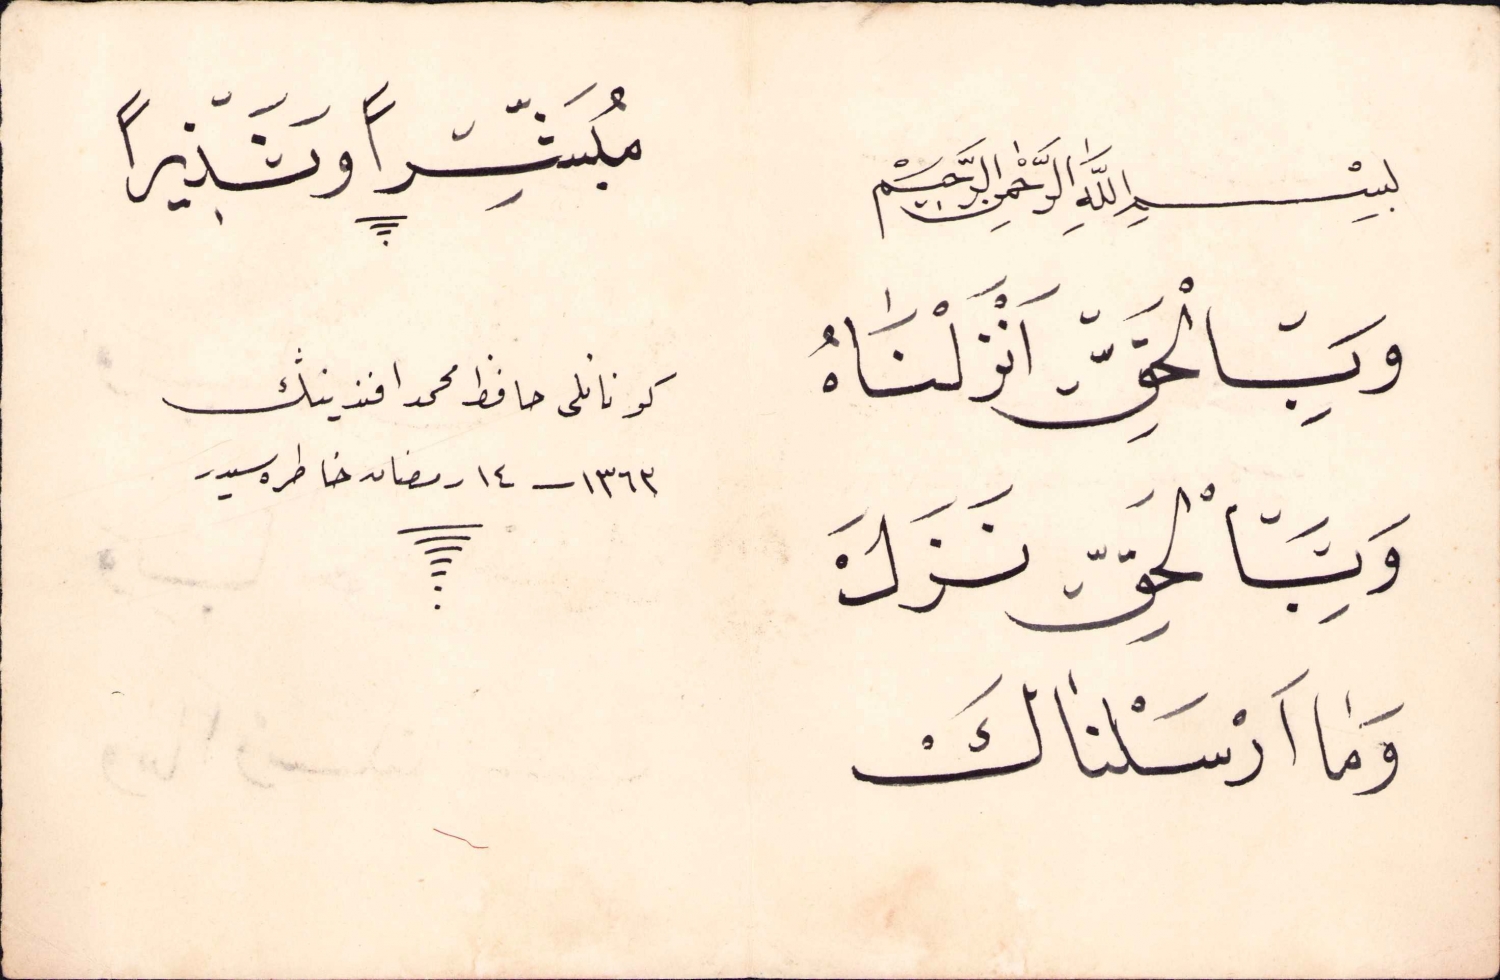 بِسْمِ اللَّهِ الرَّحْمٰنِ الرَّحِيمِ
وَبِالْحَقِّ اَنْزَلْنَاهُ
وَبِالْحَقِّ نَزَلَ
وَمَا اَرْسَلْنَاكَ
مُبَشِّراً وَنَذِيراً
كونانلى حافظ محمد افندينڭ
١٣٦٣ – ١٤ رمضان خاطره سيدر